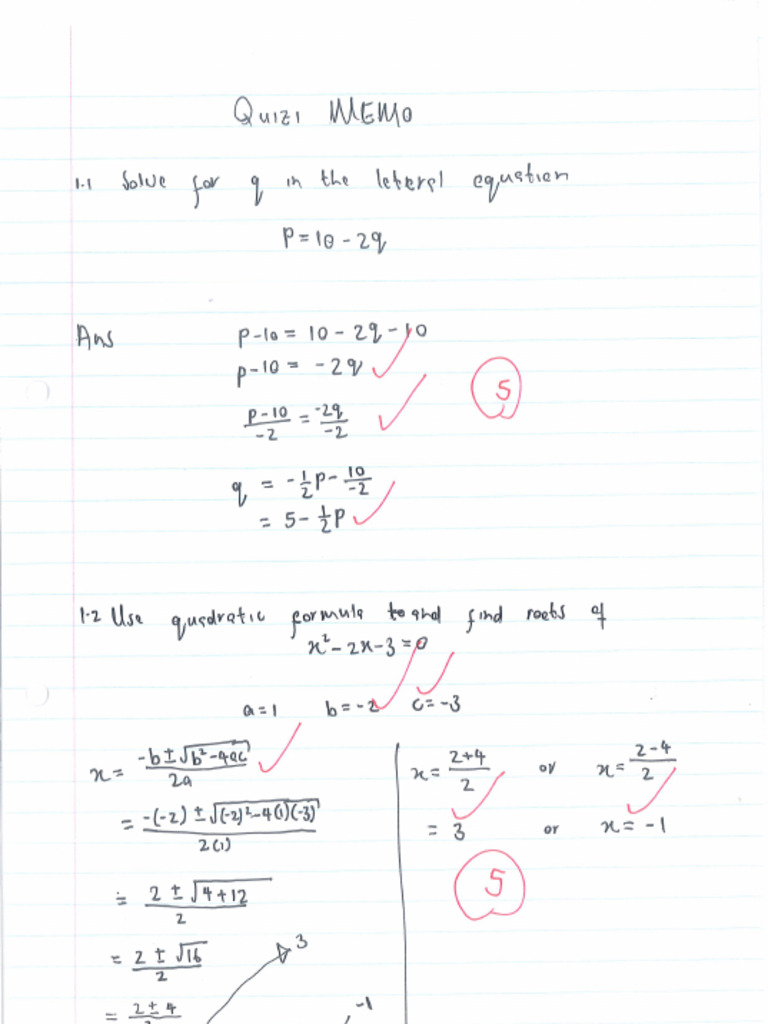 Quiz1 MEMO
1.1 Solve for q in the leteral equation
P = 10 - 2q
Ans
p-10 = 10 - 2q - 10
p-10 = -2q
5
p-10/-2 = -2q/-2
q = -1/2 p - 10/-2
= 5 - 1/2 p
1.2 Use quadratic formula to and find roots of
x² - 2x - 3 = 0
a=1 b=-2 c=-3
x = -b ± √b²-4ac / 2a
= -(-2) ± √(-2)²-4(1)(-3) / 2(1)
= 2 ± √4+12 / 2
= 2 ± √16 / 2
= 2 ± 4
3
-1
x = 2+4/2 or x = 2-4/2
= 3 or x = -1
5